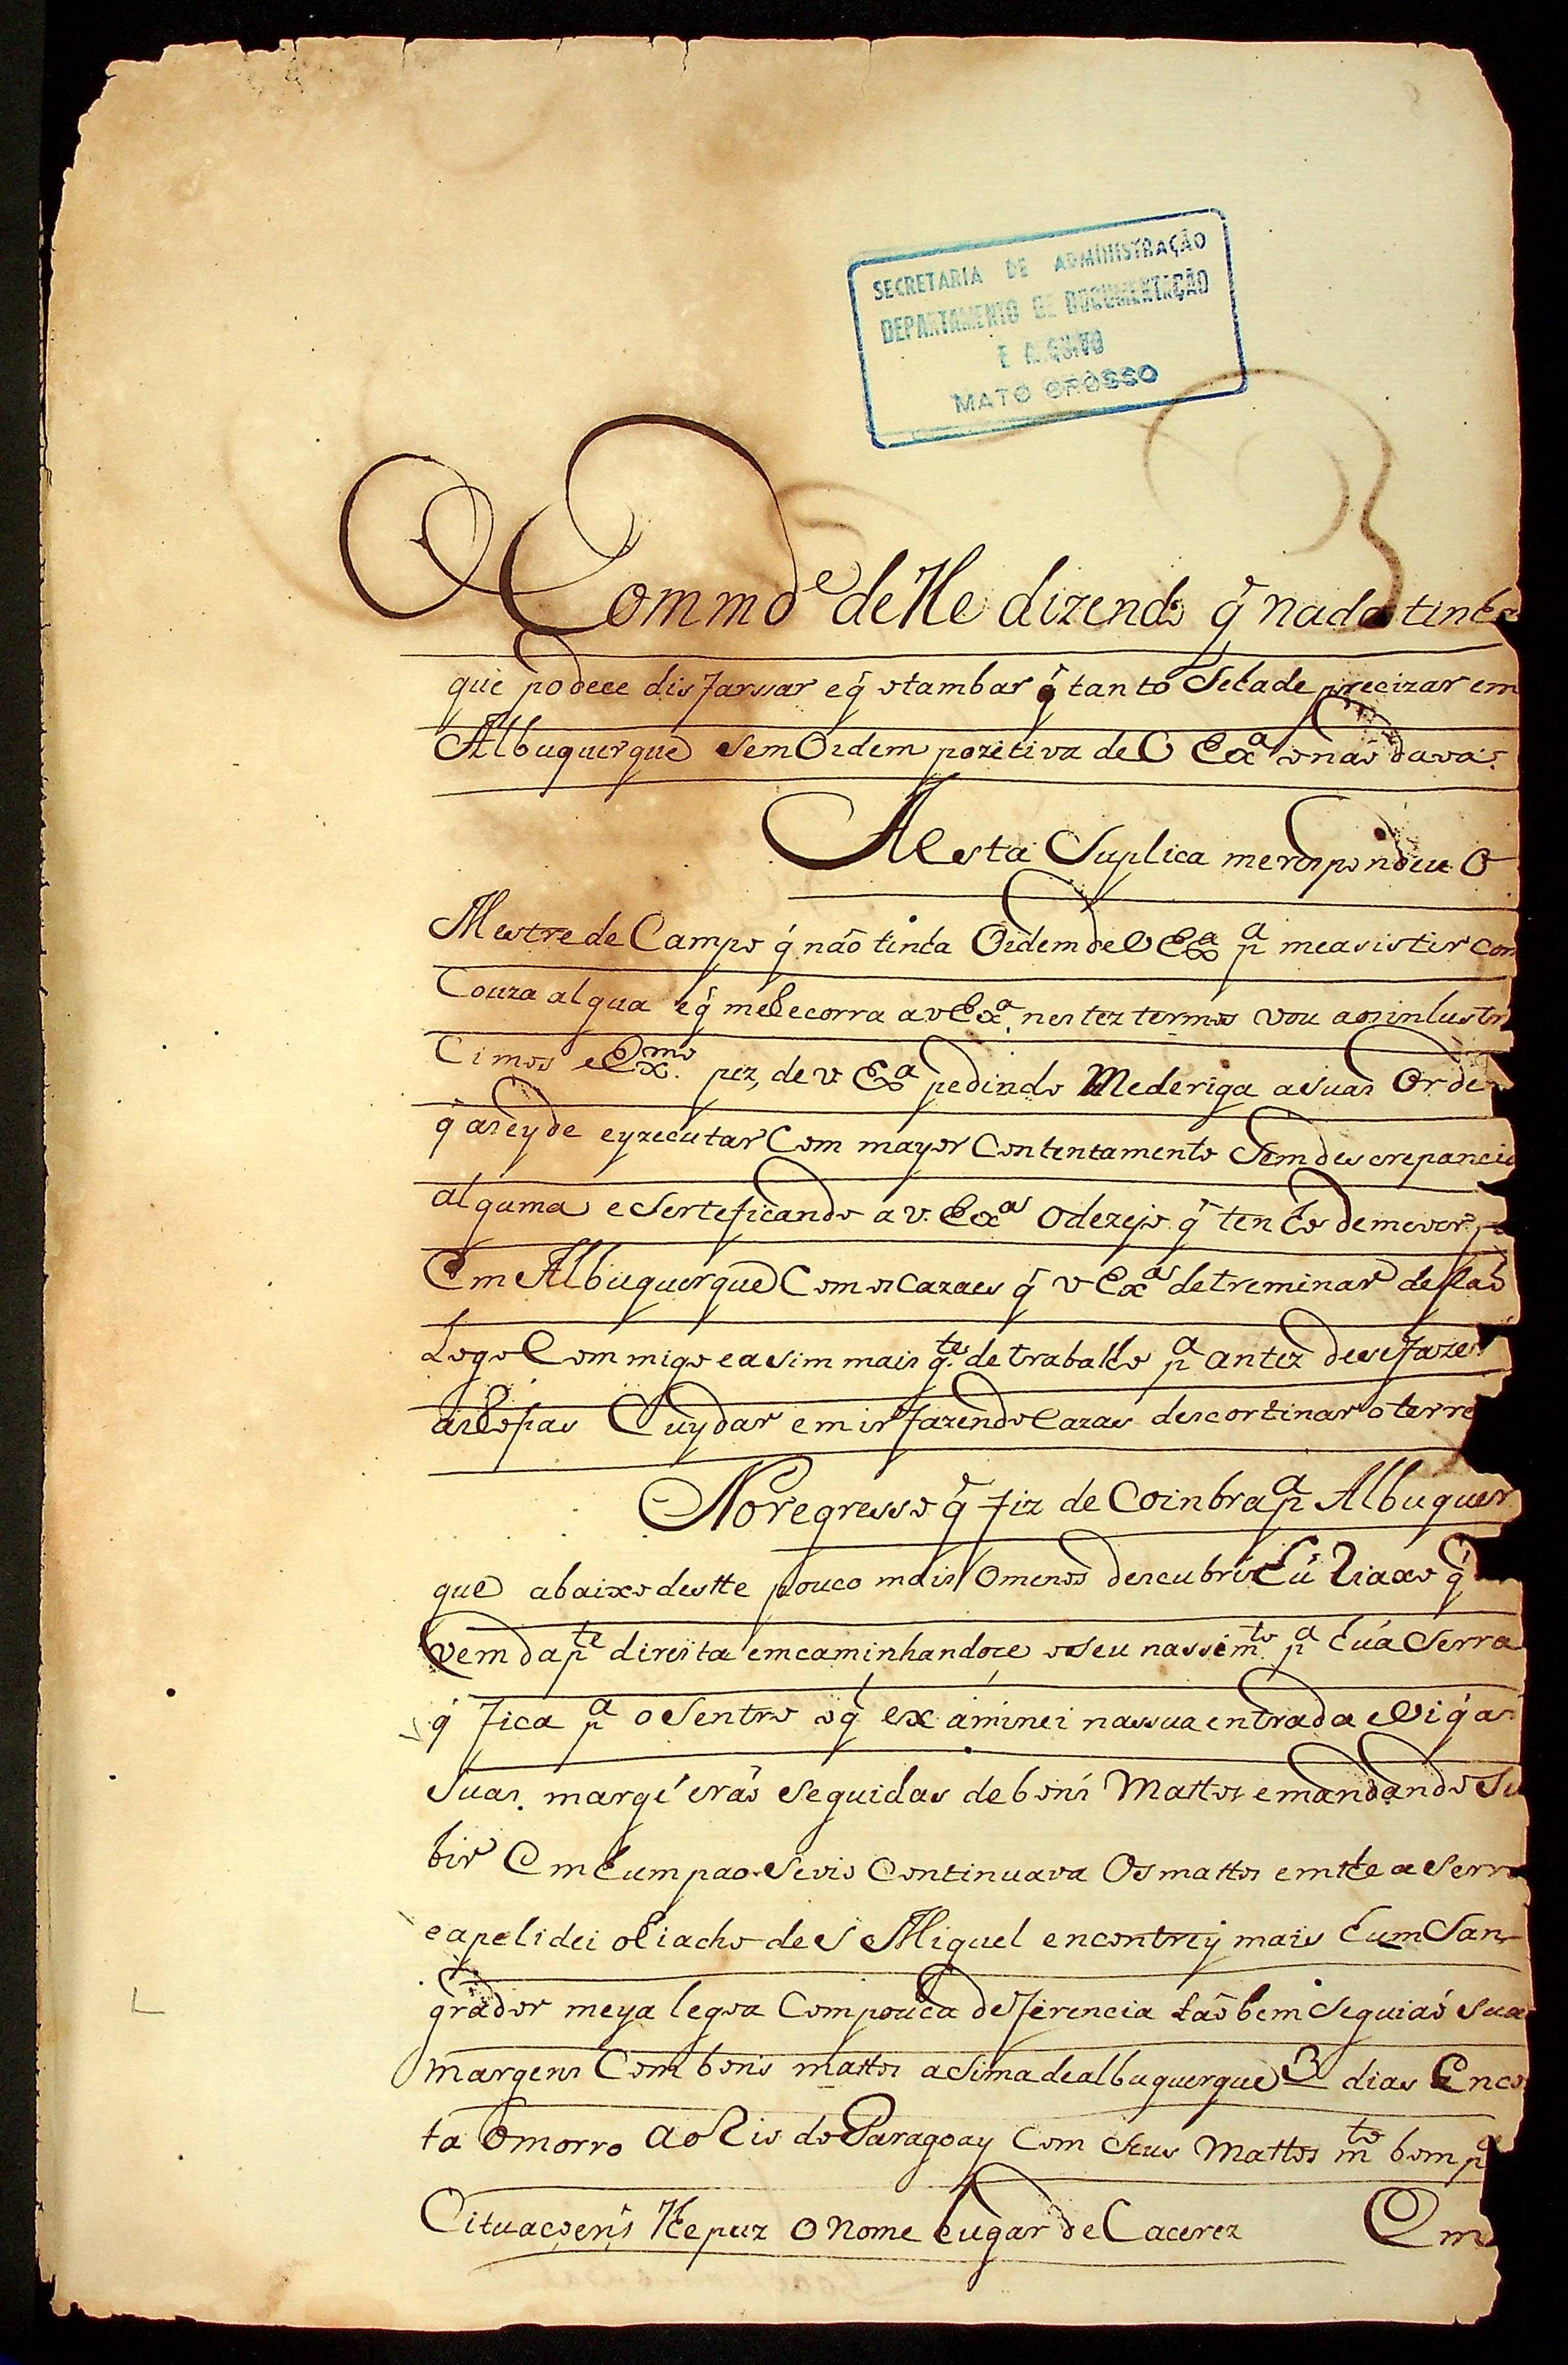 SECRETARIA DE ADMINISTRAÇÃO
DEPARTAMENTO DE DOCUMENTAÇÃO
E ARQUIVO
MATO GROSSO
Commde deHe dizendo q̃ nada tinha
que podece disfarssar eq̃ otambar q̃ tanto Sehade precizar em
Albuquerque Sem Ordem pozetiva deV Exa onaõ dava.
AEsta Suplica merespondeu O
Mestre de Campo q̃ naõ tinha Ordem deV Exa pa measistir com
Couza algua eq̃ meRecorra a vExa, nestez termos vou aosinlustri
Cimos eExmo. pez, de v Exa pedindo Mederiga asuas Orde
q̃ aseyde eyzecutar Com mayor Contentamento Sem descrepancia
alguma e Serteficando a v. Exas Odezejo q̃ tenho demever
Em Albuquerque Com os Cazaes q̃ v Exas detreminar
Logo Commigo e asim mais qtes de trabalho pa antez desefazer
asRossas Cuydar em ir fazendo Cazas descortinar oterre
No regresso q̃ fiz de Coinbra pa Albuquer
que abaixo destte pouco mais Omenos descubri hũ Riaxo q̃
vem da pte direita emcaminhandoce oseu nassimto pa hũa Serra
q̃ fica pa o Sentro oq̃ examinei nassua entrada eVi q̃ as
Suas margẽ eraõ Seguidas de bons Mattos emandando Su
bir Em hum pao Sevio Continuava Os mattos emthe a Serra
e apelidei oRiacho de S Miguel encontrey mais hum San
grador meya legoa Compouca deferencia taõbem Seguiaõ Suas
margens Com bons mattos aSima dealbuquerque 3 dias Enco
ta Omorro ao Rio do Paragoay Com Seus Mattos mto bom pa
Cituacoens lhe puz O Nome Lugar de Cacerez Em